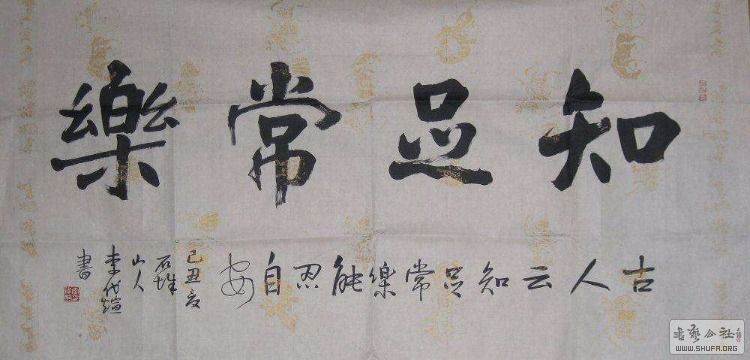 知足常樂
古人云知足常樂能忍自安
己丑夏
石
山人
李代煊
書
书艺公社
WWW.SHUFA.ORG